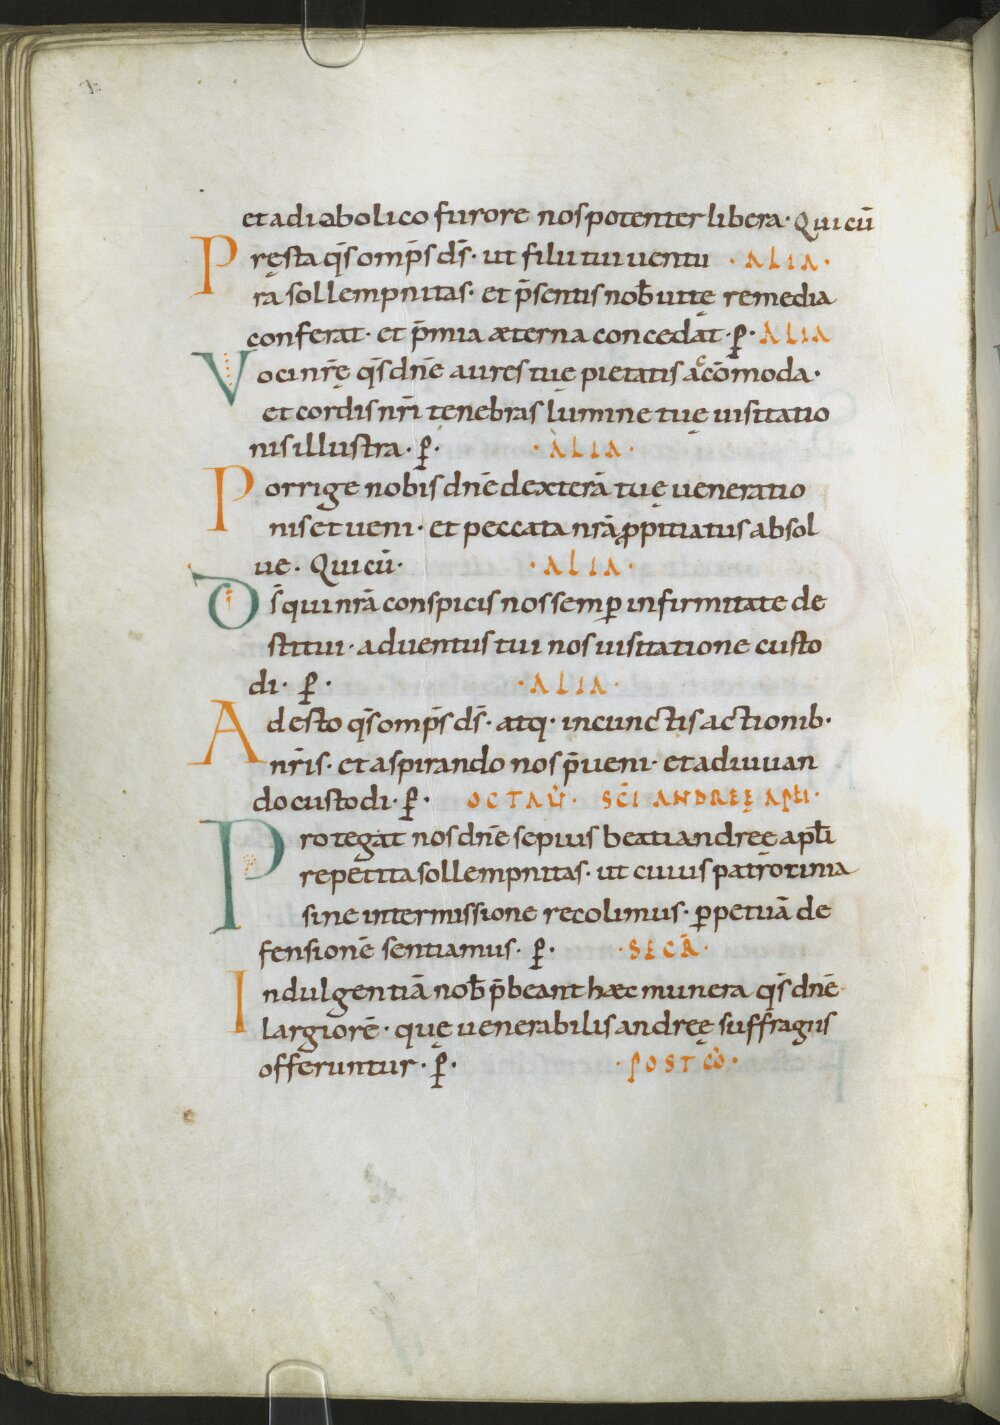 et a diabolico furore nos potenter libera· Qui cū
Pręsta q̄s omp̄s d̄s· ut filii tui uentu ·ALIA·
ra sollempnitas· et p̄sentis nob̄ uitę remedia
conferat· et p̄mia æterna concedat· p̱· ALIA
Voci nr̄ę q̄s dn̄e aures tuę pietatis accōmoda·
et cordis nr̄i tenebras lumine tuę uisitatio
nis illustra· p̱· ·ALIA·
Porrige nobis dn̄e dexterā tuę ueneratio
nis et ueni· et peccata nrā ꝓpitiatus absol
ue· Qui cū· ·ALIA·
D̄s qui nrā conspicis nos semꝑ infirmitate de
stitui· aduentus tui nos uisitatione custo
di· p̱· ·ALIA·
Adesto q̄s omp̄s d̄s· atq· in cunctis actionib·
nr̄is· et aspirando nos p̄ueni· et adiuuan
do custodi· p̱· OCTAV̄· SC̄I ANDREĘ AP̄LI·
Protegat nos dn̄e sepius beati andreę ap̄li
repetita sollempnitas· ut cuius patrocinia
sine intermissione recolimus· ꝑpetuā de
fensionē sentiamus· p̱· ·SECR̄·
Indulgentiā nob̄ p̄beant hæc munera q̄s dn̄e
largiorē· quę uenerabilis andreę suffragiis
offeruntur· p̱· ·POST CŌ·